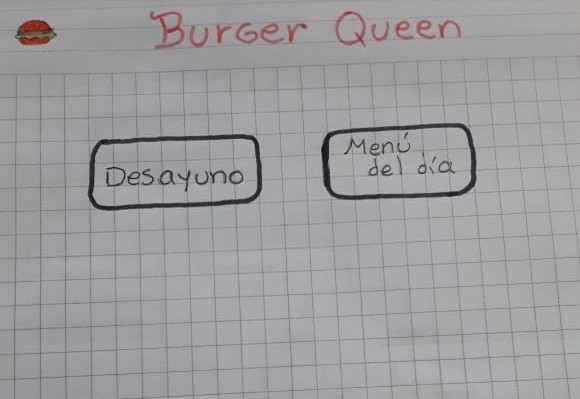 Burger Queen
Desayuno
Menú
del día